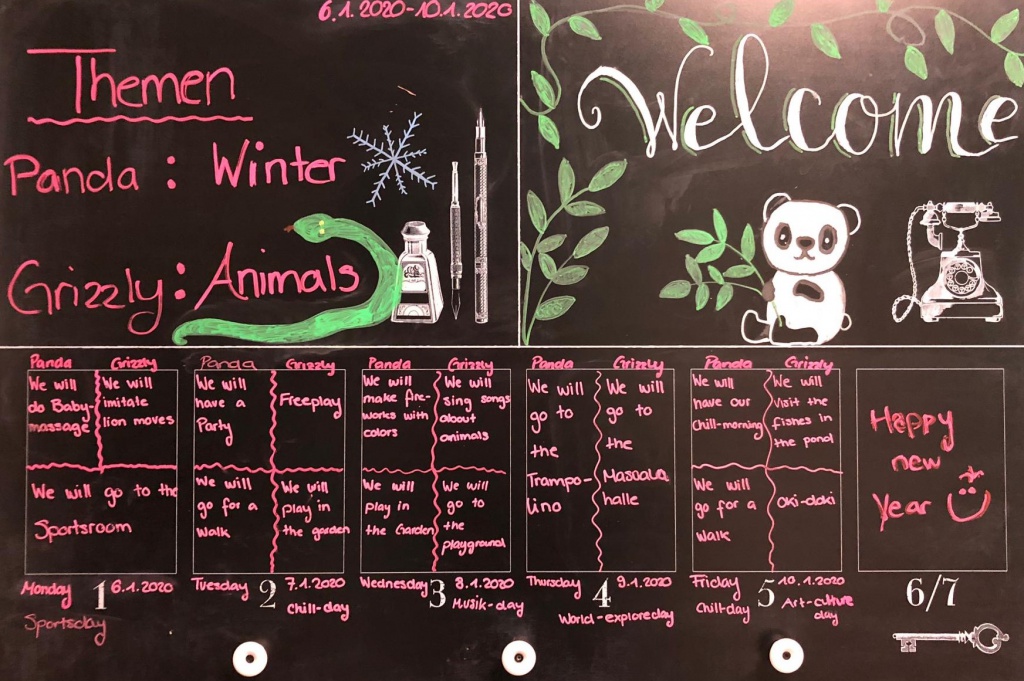 6.1.2020-10.1.2020
Themen
Panda : Winter
Grizzly : Animals
Welcome
Panda
We will
do Baby-
massage
Grizzly
We will
imitate
lion moves
We will go to the
Sportsroom
Monday 1 6.1.2020
Sportsday
Panda
We will
have a
Party
Grizzly
Freeplay
We will
go for a
walk
We will
play in
the garden
Tuesday 2 7.1.2020
Chill-day
Panda
We will
make fire-
works with
colors
Grizzly
We will
sing songs
about
animals
We will
play in
the Garden
We will
go to
the
playground
Wednesday 3 8.1.2020
Musik-day
Panda
We will
go to
the
Trampo-
lino
Grizzly
We will
go to
the
Masoala
halle
Thursday 4 9.1.2020
World-exploreday
Panda
We will
have our
Chill-morning
Grizzly
We will
Visit the
fishes in
the pond
We will
go for a
walk
Oki-doki
Friday 5 10.1.2020
Chill-day
Art-culture
day
Happy
new
Year
6/7